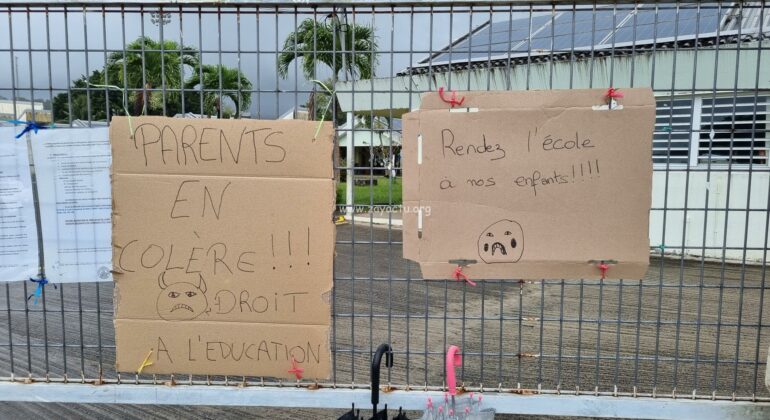 PARENTS
EN
COLÈRE!!!
DROIT
A L'EDUCATION
Rendez l'école
à nos enfants!!!!
www.zayactu.org